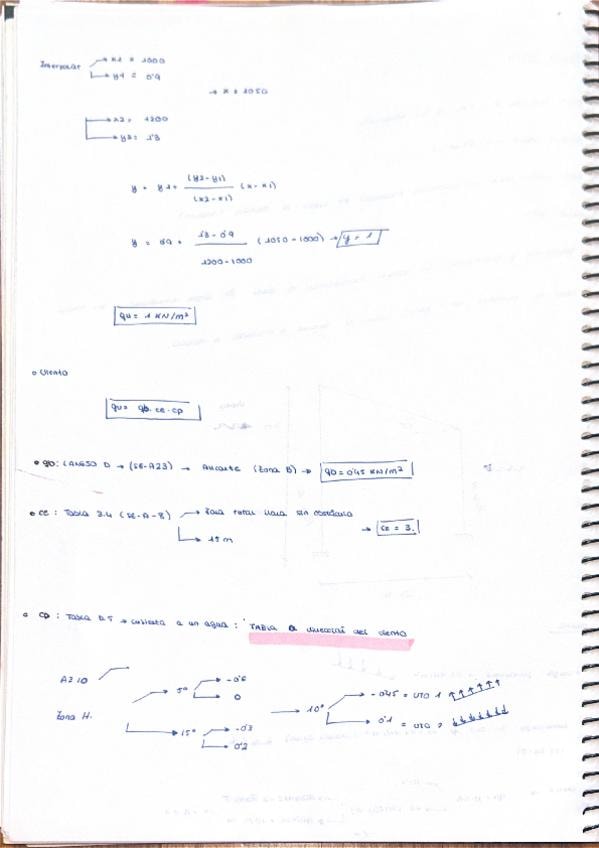 Interpolar x1 = 1000
y1 = 0'9
→ x = 1050
x2 = 1200
y2 = 1'3
y = y1 + (y2-y1) / (x2-x1) (x-x1)
y = 0'9 + 1'3 - 0'9 / 1200-1000 (1050-1000) → y = 1
qu = 1 KN/m²
o Viento
qu = qb · ce · cp
• qb: (ANEJO D → (SE-A23) → Alicante (Zona B) → qb = 0'45 KN/m²
• ce: Tabla 3.4 (SE-A-8) → Zona rural llana sin obstáculo → ce = 3.
→ 15 m
• cp: Tabla D.5 → cubierta a un agua: TABLA a dirección del viento
A≥10
Zona H.
5° → -0'6
→ 0
15° → -0'3
→ 0'2
→ 10° → -0'45 = VTO 1 ↑↑↑↑↑↑
→ 0'1 = VTO 2 ↓↓↓↓↓↓